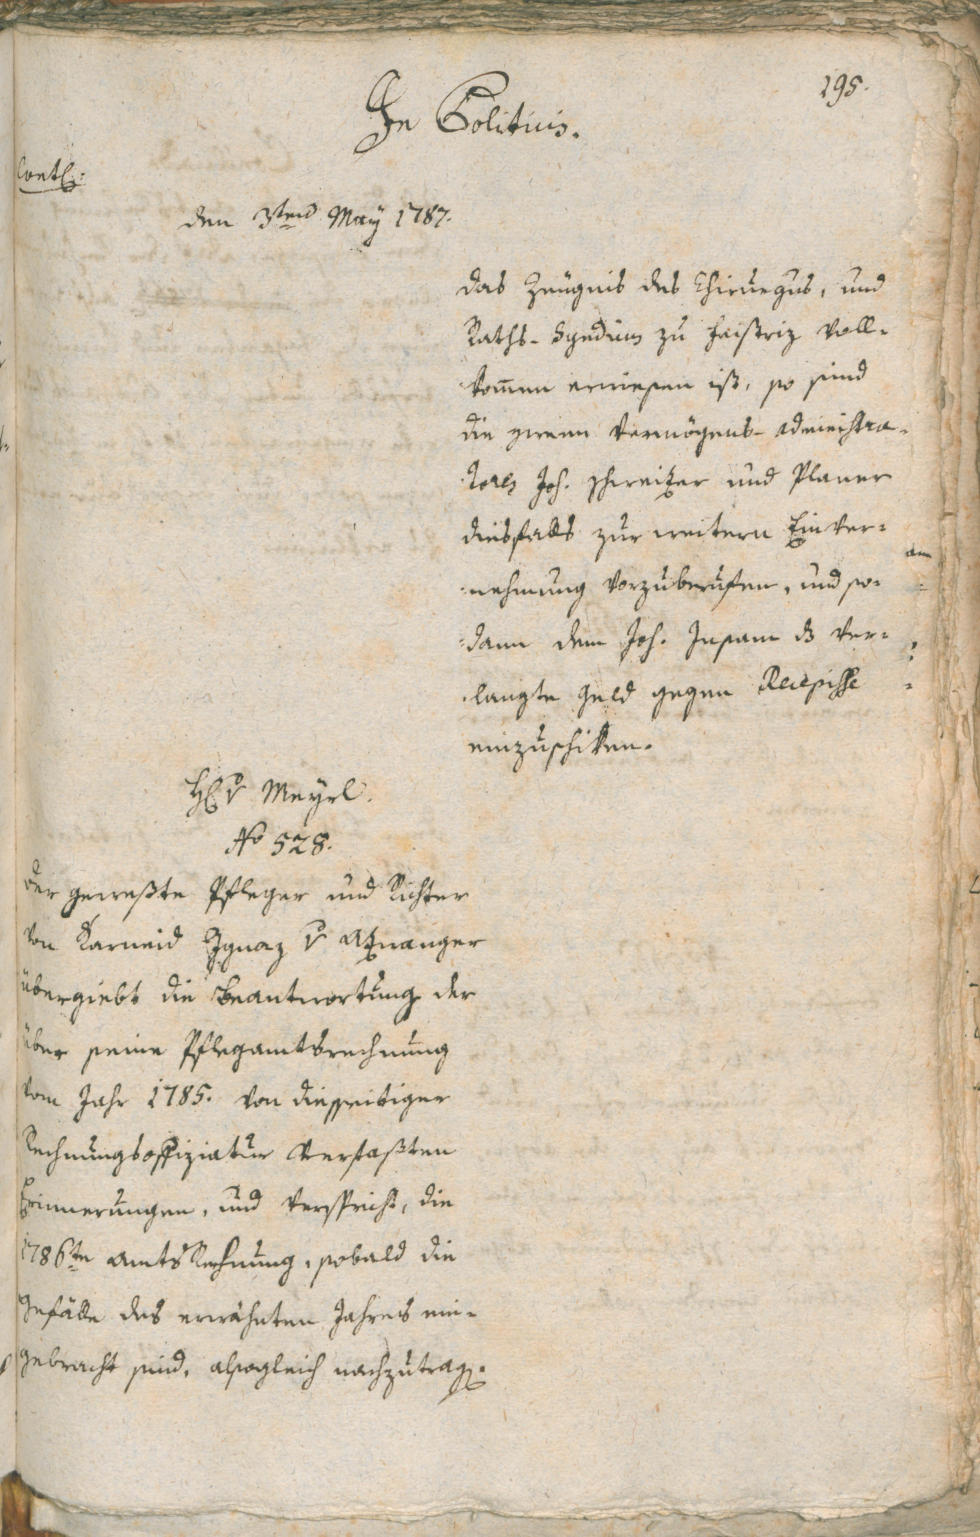 195.
In Politicis.
Contl:
den 3ten May 1787.
das Zeugnis des Chirurgus, und
Raths- zu Faistriz voll-
kommen erwiesen ist, so sind
die zween Vermögens- Administra-
tores Joh. Schweizer und Planer
diesfalls zur weitern Einver-
nehmung vorzuberuffen, und so-
dann dem Joh. Insam ds ver-
langte Geld gegen Recepisse
einzuschiken.
H: v Meyrl.
No 528.
der geweste Pfleger und Richter
von Karneid Ignaz v Atznanger
übergiebt die Beantwortung der
über seine Pflegamtsrechnung
vom Jahr 1785. von diesseitiger
Rechnungsoffiziatur verfaßten
Erinnerungen, und verspricht, die
1786te Amts Rechnung, sobald die
Gefälle des erwähnten Jahres ein-
gebracht sind, alsogleich nachzutrag: